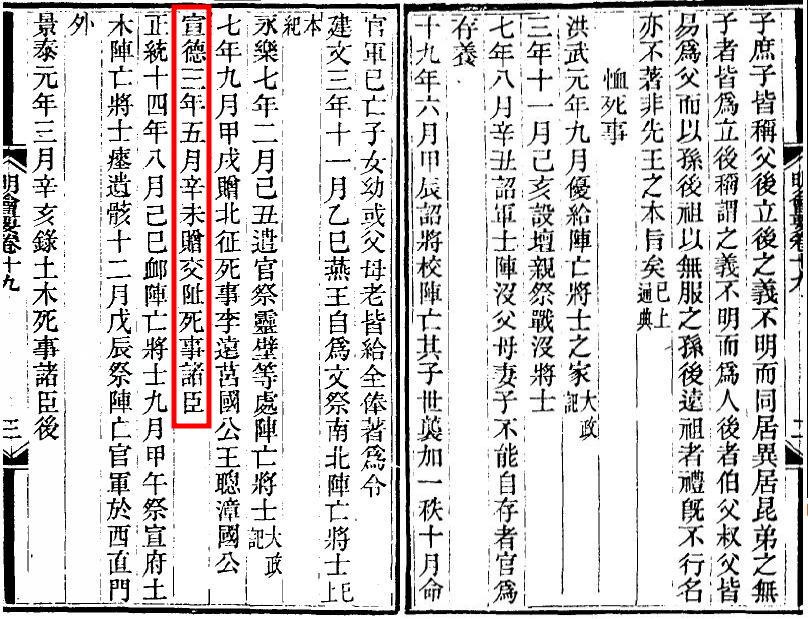 子庶子皆稱父後立後之義不明而同居異居昆弟之無
子者皆爲立後稱謂之義不明而爲人後者伯父叔父皆
易爲父而以孫後祖以無服之孫後遠祖者禮旣不行名
亦不著非先王之本旨矣已上通典
恤死事
洪武元年九月優給陣亡將士之家大政記
三年十一月己亥設壇親祭戰沒將士
七年八月辛丑詔軍士陣沒父母妻子不能自存者官爲
存養
十九年六月甲辰詔將校陣亡其子世襲加一秩十月命
官軍已亡子女幼或父母老皆給全俸著爲令
建文三年十一月乙巳燕王自爲文祭南北陣亡將士已上
本紀
永樂七年二月己丑遣官祭靈壁等處陣亡將士大政記
七年九月甲戌贈北征死事李遠莒國公王聰漳國公
宣德三年五月辛未贈交阯死事諸臣
正統十四年八月己巳卹陣亡將士九月甲午祭宣府土
木陣亡將士瘞遺骸十二月戊辰祭陣亡官軍於西直門
外
景泰元年三月辛亥錄土木死事諸臣後
明會要卷十九
三